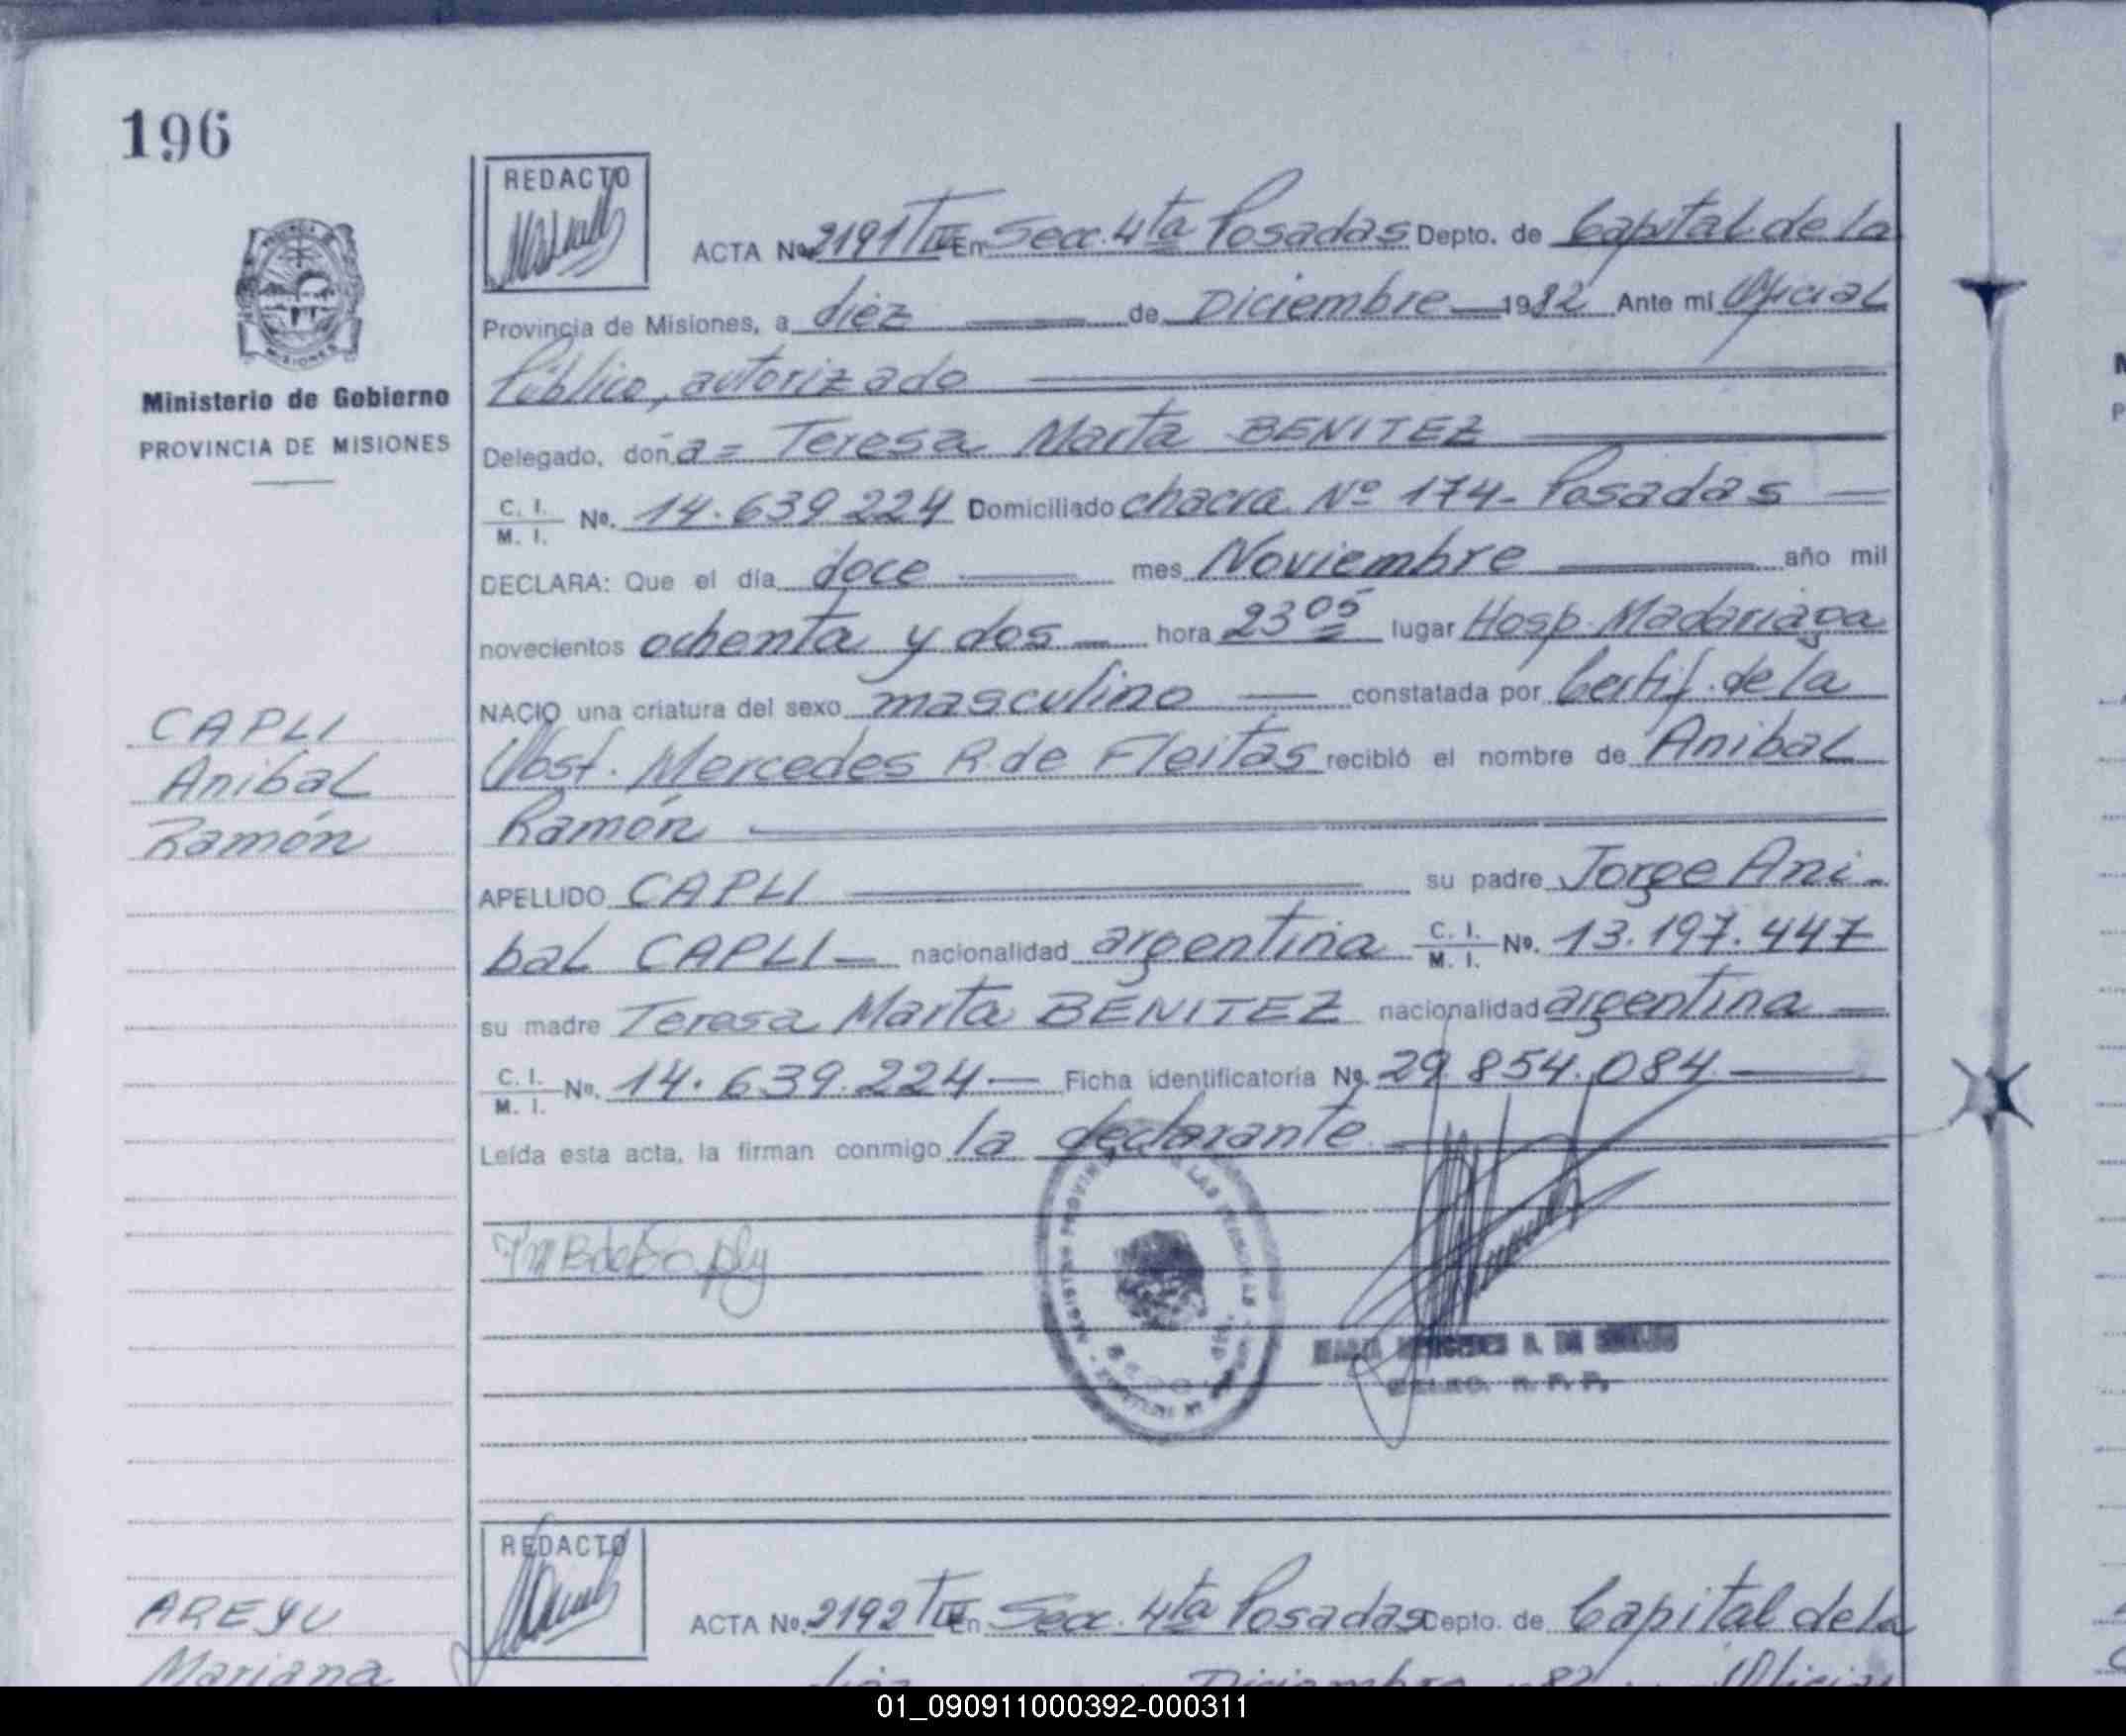 196
REDACTO
ACTA No. 2191 T III En Secc. 4ta Posadas Depto. de Capital de la
Provincia de Misiones, a diez de Diciembre 1982 Ante mi Oficial
Público, autorizado
Ministerio de Gobierno
PROVINCIA DE MISIONES
Delegado, don a = Teresa Marta BENITEZ
C. I. M. I. No. 14.639.224 Domiciliado chacra Nº 174 - Posadas
DECLARA: Que el día doce mes Noviembre año mil
novecientos ochenta y dos hora 23 05 lugar Hosp. Madariaga
NACIO una criatura del sexo masculino constatada por Certif. de la
Obst. Mercedes R de Fleitas recibió el nombre de Anibal
Ramón
CAPLI
Anibal
Ramón
APELLIDO CAPLI su padre Jorge Ani-
bal CAPLI nacionalidad argentina C. I. M. I. No. 13.197.447
su madre Teresa Marta BENITEZ nacionalidad argentina
C. I. M. I. No. 14.639.224 Ficha identificatoria No. 29.854.084
Leída esta acta, la firman conmigo la declarante
REDACTO
ACTA No. 2192 T III En Secc. 4ta Posadas Depto. de Capital de la
AREYU
Mariana
diez Diciembre 82 Oficial
01_090911000392-000311